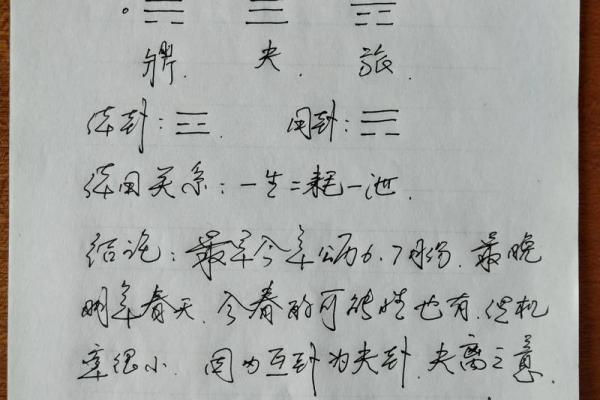 鼎. 夬. 旅.
体卦:☴. 用卦:☲
体用关系:一生二耗一泄.
结论:最早今年公历6.7月份.最晚
明年春天.今春的可能性也有.但机
率很小.因为互卦为夬卦.夬离之意.